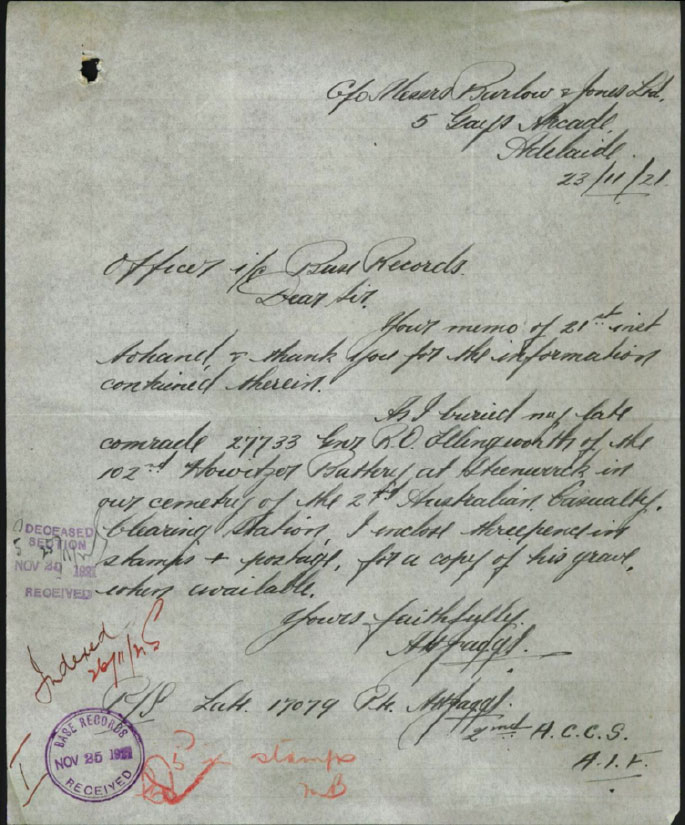 C/o Messrs Burlow & Jones Ltd.
5 Gays Arcade,
Adelaide.
23/11/21.
Officer i/c Base Records.
Dear Sir.
Your memo of 21st inst
tohand, & thank you for the information
contained therein.
As I buried my late
comrade 27733 Gnr R.O. Illingworth of the
102nd Howitzer Battery at Steenwerck in
our cemetry of the 2nd Australian Casualty.
Clearing Station, I enclose threepence in
stamps + postage, for a copy of his grave,
when available.
Yours faithfully.
AHJaggs.
P/S Late 17079 Pte. AHJaggs.
2nd A.C.C.S.
A.I.F.
DECEASED
SECTION
NOV 25 1921
RECEIVED
Indexed
26/11/21
BASE RECORDS.
NOV 25 1921
RECEIVED
stamps